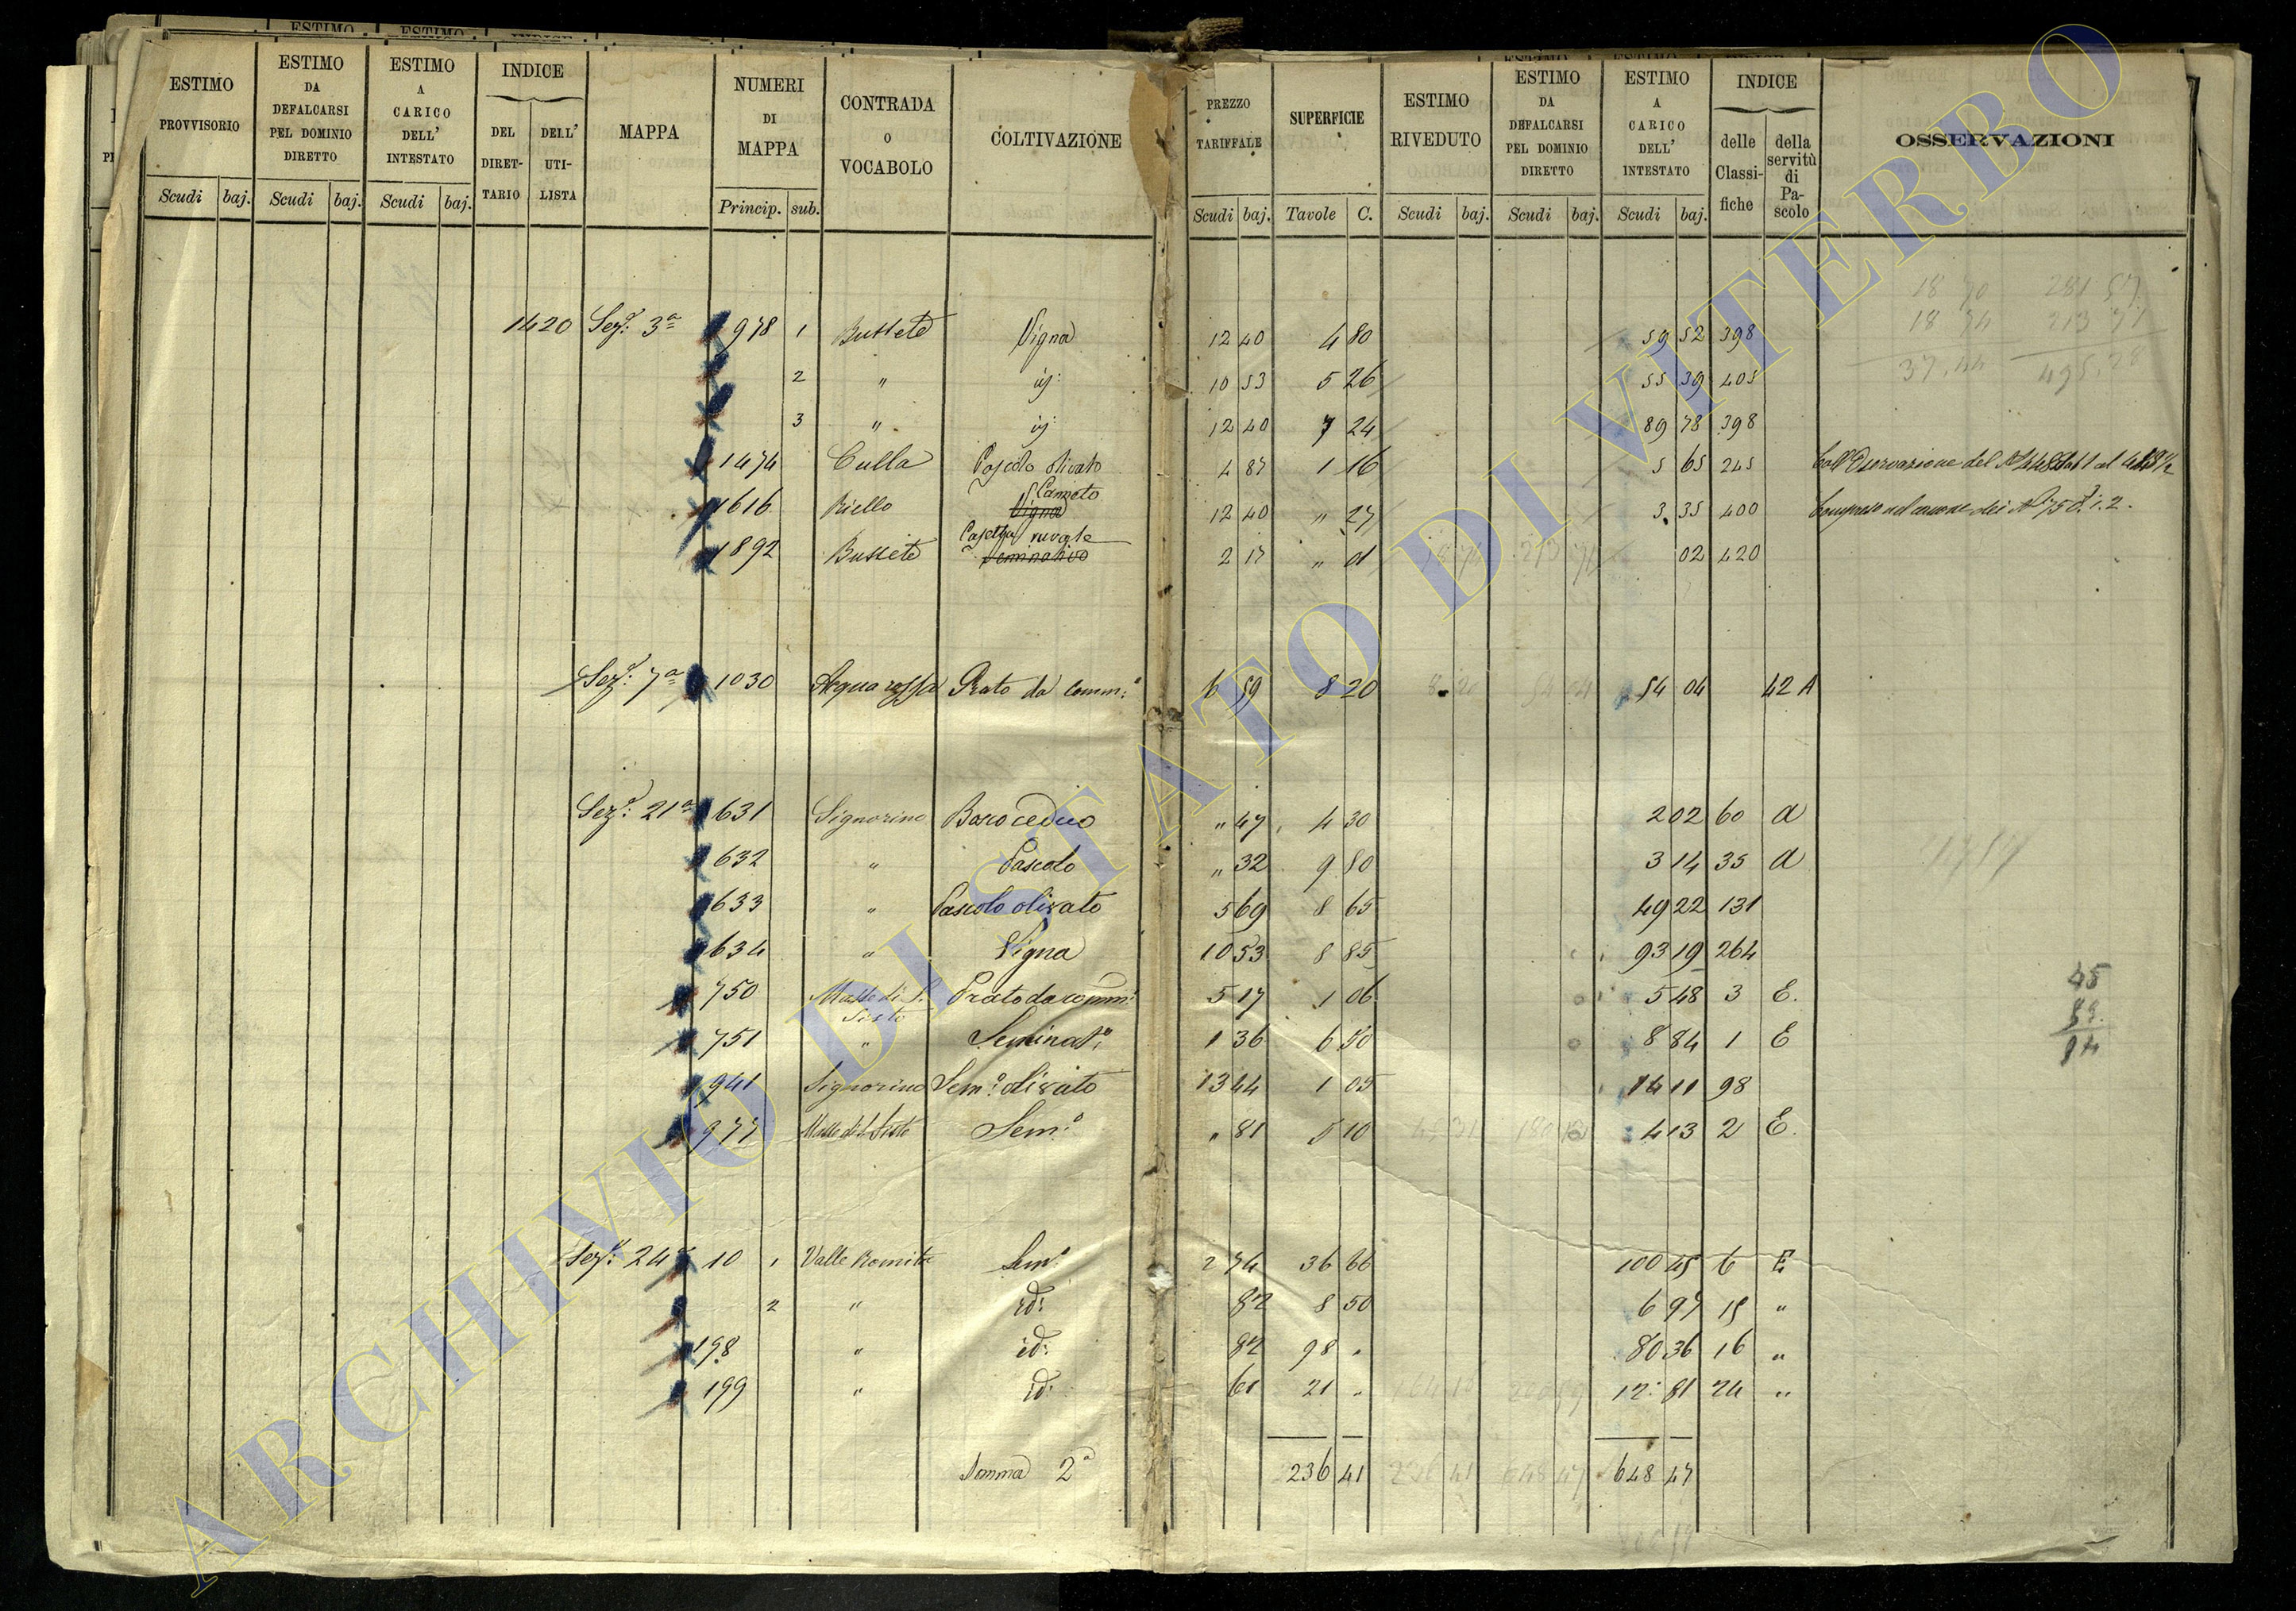 ESTIMO PROVVISORIO
ESTIMO DA DEFALCARSI PEL DOMINIO DIRETTO
ESTIMO A CARICO DELL' INTESTATO
INDICE
DEL DIRETTARIO
DELL' UTILISTA
MAPPA
NUMERI DI MAPPA
CONTRADA o VOCABOLO
COLTIVAZIONE
PREZZO TARIFFALE
SUPERFICIE
ESTIMO RIVEDUTO
ESTIMO DA DEFALCARSI PEL DOMINIO DIRETTO
ESTIMO A CARICO DELL' INTESTATO
INDICE
delle Classifiche
della servitù di Pascolo
OSSERVAZIONI
Scudi baj. Scudi baj. Scudi baj. Princip. sub. Scudi baj. Tavole C. Scudi baj. Scudi baj. Scudi baj.
1420 Sez.e 3a 978 1 Bussete Vigna 12 40 4 80 59 52 398
2 " id: 10 53 5 26 55 39 405
3 " id: 12 40 7 24 89 78 398
1474 Culla Pascolo olivato 4 87 1 16 5 65 245
1616 Riello Vigna Canneto 12 40 " 27 3 35 400
1892 Bussete Seminativo Casetta rurale 2 17 " 1 02 420
Sez.e 7a 1030 Acquarossa Prato da comm:e 6 59 8 20 54 04 42 A
Sez.e 21a 631 Signorino Bosco ceduo " 47 4 30 2 02 60 A
632 " Pascolo " 32 9 80 3 14 35 A
633 " Pascolo olivato 5 69 8 65 49 22 131
634 " Vigna 10 53 8 85 93 19 264
750 Masse di S. Sisto Prato da comm: 5 17 1 06 5 48 3 E.
751 " Seminat:o 1 36 6 50 8 84 1 E
941 Signorino Sem:o olivato 13 44 1 05 14 11 98
977 Masse di S. Sisto Sem:o " 81 5 10 4 13 2 E.
Sez.e 24a 10 1 Valle Romita Sem:o 2 74 36 66 100 45 6 E
2 " id: 82 8 50 6 97 15 "
198 " id: 82 98 " 80 36 16 "
199 " id: 61 21 " 12 81 24 "
Somma 2a 236 41 648 47
ARCHIVIO DI STATO DI VITERBO